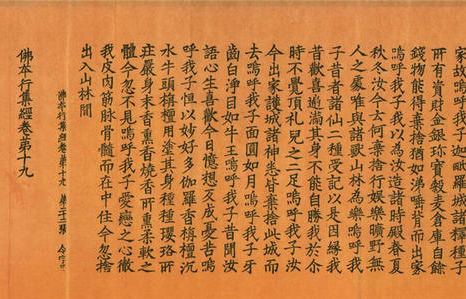 家故嗚呼我子迦毗羅城諸釋種子
所有資財金銀珎寶穀麦倉庫自餘
錢物能得棄捨猶如涕唾背而出家
嗚呼我子我以為汝造諸時殿春夏
秋冬汝今去何棄捨行娛樂曠野無
人之處唯與諸獸山林為樂嗚呼我
子昔者諸仙二種受記以是因緣我
昔歡喜遍滿其身不能自勝我於尒
時不覺頂礼兒之二足嗚呼我子汝
今出家護城諸神悉皆棄捨此城而
去嗚呼我子面圓如月嗚呼我子牙
齒白淨目如牛王嗚呼我子昔聞汝
語心生喜歡今日憶想反成憂苦嗚
呼我子恒以妙好多伽羅香栴檀沉
水牛頭栴檀用塗其身種種瓔珞所
莊嚴身末香熏香燒香所熏柔軟之
體今忽不見嗚呼我子愛戀之心徹
我皮肉筋脉骨髓而在中住今忽捨
出入山林間
佛本行集經卷第十九 第二十二張
佛本行集經卷第十九